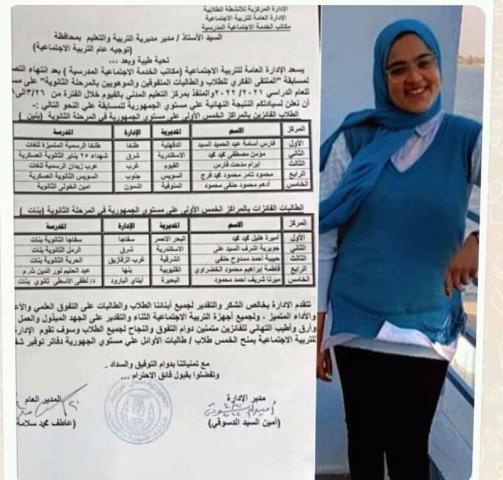 الإدارة المركزية للأنشطة الطلابية
الإدارة العامة للتربية الاجتماعية
مكاتب الخدمة الاجتماعية المدرسية
السيد الأستاذ / مدير مديرية التربية والتعليم بمحافظة
(توجيه عام التربية الاجتماعية)
تحية طيبة وبعد ...
يسعد الإدارة العامة للتربية الاجتماعية (مكاتب الخدمة الاجتماعية المدرسية) بعد انتهاء
لمسابقة "الملتقى الفكري للطلاب والطالبات المتفوقين والموهوبين بالمرحلة الثانوية" على
الدراسي ٢٠٢٢/٢٠٢١ والمنفذ بمركز التعليم المدني بالفيوم خلال الفترة من ٣/٢١
أن نعلن لسيادتكم النتيجة النهائية على مستوي الجمهورية للمسابقة على النحو التالي :-
الطلاب الفائزين بالمراكز الخمس الأولى على مستوي الجمهورية في المرحلة الثانوية (بنين)
المركز الاسم المديرية الإدارة المدرسة
الأول فارس أسامة عبد الحميد السيد الدقهلية طلخا طلخا الرسمية المتميزة للغات
الثاني مؤمن مصطفي محمد محمد الاسكندرية شرق شهداء ٢٥ يناير الثانوية العسكرية
الثالث مدحت رسام الفيوم غرب زيدان الرسمية للغات
الرابع محمود ثامر محمود محمد فرج السويس جنوب السويس الثانوية العسكرية
الخامس أدهم محمود حنفي محمود المنوفية الشهداء أمين الخولي الثانوية
الطالبات الفائزات بالمراكز الخمس الأولى على مستوي الجمهورية في المرحلة الثانوية (بنات)
المركز الاسم المديرية الإدارة المدرسة
الأول أميرة محمد محمد البحر الأحمر سفاجا سفاجا الثانوية بنات
الثاني جويرية أشرف السيد علي الاسكندرية شرق الرمل الثانوية بنات
الثالث حبيبة أحمد ممدوح حنفي الشرقية غرب الزقازيق الحرية الثانوية بنات
الرابع فاطمة إبراهيم محمود الخضراوي القليوبية بنها عبد الحليم نور الدين
الخامس ميرنا شريف أحمد محمود البحيرة ايتاي البارود د/لطفي ثانوي بنات
تتقدم الإدارة بخالص الشكر والتقدير لجميع أبنائنا الطلاب والطالبات على التفوق العلمي
والأداء المتميز ، ولجميع أجهزة التربية الاجتماعية الثناء والتقدير على الجهد المبذول والعمل
وأرق وأطيب التهاني للفائزين متمنين دوام التفوق والنجاح لجميع الطلاب وسوف تقوم الإدارة
للتربية الاجتماعية بمنح الخمس طلاب / طالبات الأوائل على مستوي الجمهورية دفاتر توفير
مع تمنياتنا بدوام التوفيق والسداد .
وتفضلوا بقبول فائق الاحترام ...
مدير الإدارة
(أمين السيد الدسوقي)
المدير العام
(عاطف محمد سلامة